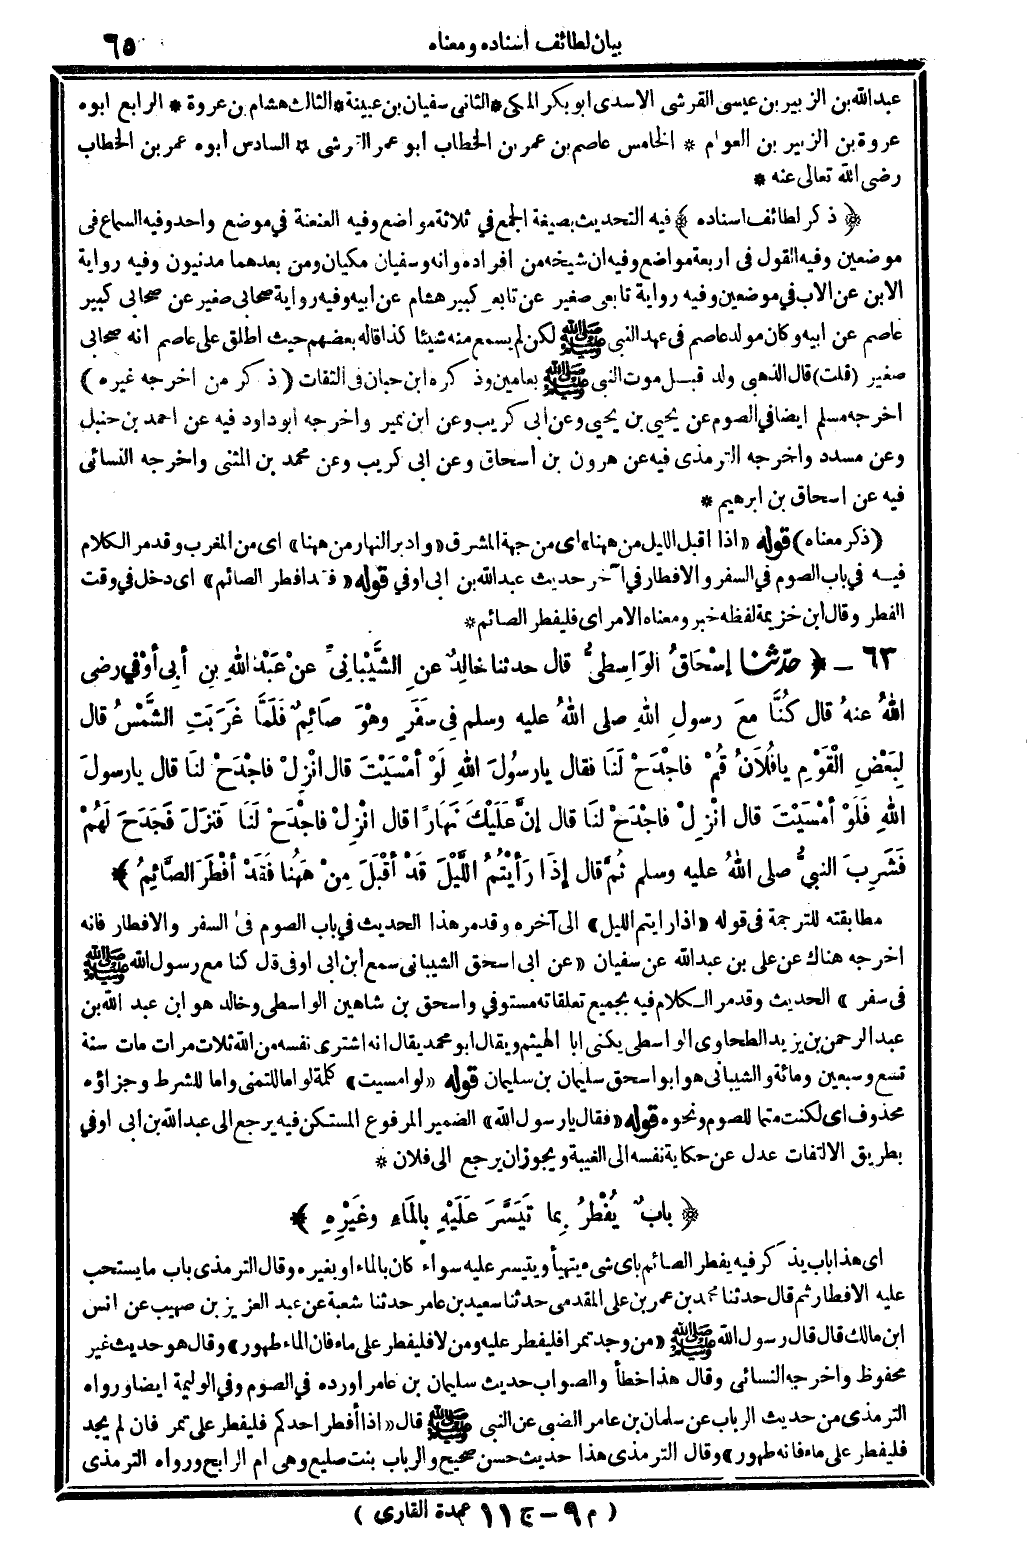 بيان لطائف اسناده ومعناه ٦٥
عبد الله بن الزبير بن عيسى القرشى الاسدى ابو بكر المكى * الثانى سفيان بن عيينة * الثالث هشام بن عروة * الرابع ابوه
عروة بن الزبير بن العوام * الخامس عاصم بن عمر بن الخطاب أبو عمر القرشى * السادس أبوه عمر بن الخطاب
رضى الله تعالى عنه *
﴿ ذكر لطائف اسناده ﴾ فيه التحديث بصيغة الجمع في ثلاثة مواضع وفيه العنعنة في موضع واحد وفيه السماع فى
موضعين وفيه القول فى اربعة مواضع وفيه ان شيخه من افراده وانه وسفيان مكيان ومن بعدهما مدنيون وفيه رواية
الابن عن الاب في موضعين وفيه رواية تابعى صغير عن تابعى كبير هشام عن ابيه وفيه رواية صحابى صغير عن صحابى كبير
عاصم عن ابيه وكان مولد عاصم فى عهد النبى ﷺ لكن لم يسمع منه شيئا كذا قاله بعضهم حيث اطلق على عاصم انه صحابى
صغير (قلت) قال الذهبى ولد قبل موت النبى ﷺ بعامين وذكره ابن حبان فى الثقات ( ذكر من اخرجه غيره )
اخرجه مسلم ايضا في الصوم عن يحيى بن يحيى وعن ابى كريب وعن ابن نمير واخرجه ابو داود فيه عن احمد بن حنبل
وعن مسدد واخرجه الترمذى فيه عن هرون بن أسحاق وعن ابى كريب وعن محمد بن المثنى واخرجه النسائى
فيه عن اسحاق بن ابرهيم *
(ذكر معناه) قوله «اذا اقبل الليل من ههنا» اى من جهة المشرق «وادبر النهار من ههنا» اى من المغرب وقد مر الكلام
فيه في باب الصوم في السفر والافطار في آخر حديث عبد الله بن ابى اوفي قوله «فقد افطر الصائم» اى دخل في وقت
الفطر وقال ابن خزيمة لفظه خبر ومعناه الامر اى فليفطر الصائم *
٦٣ - ﴿ حدثنا إسْحَاقُ الوَاسِطىُّ قال حدثنا خالِدٌ عنِ الشَّيْبانىِّ عنْ عَبْدِ اللهِ بنِ أبى أوْفي رضى
اللهُ عنهُ قال كُنَّا معَ رسولِ اللهِ صلى اللهُ عليه وسلم فى سفَرٍ وهْوَ صَائِمٌ فَلَمَّا غَرَبَتِ الشَّمْسُ قال
لِبَعْضِ الْقَوْمِ يافُلاَنُ قُمْ فاجْدَحْ لَنَا فقال يارسُولَ اللهِ لَوْ أمْسَيْتَ قال انْزِلْ فاجْدَحْ لنَا قال يارسولَ
اللهِ فَلَوْ أمْسَيْتَ قال انْزِلْ فاجْدَحْ لنَا قال إنَّ عَلَيْكَ نَهَارًا قال انْزِلْ فاجْدَحْ لَنَا فَنَزَلَ فَجَدَحَ لَهُمْ
فَشَرِبَ النبىُّ صلى اللهُ عليه وسلم ثمَّ قال إذَا رَأيْتُمُ اللَّيْلَ قَدْ أقْبَلَ مِنْ هَهُنا فَقَدْ أفْطَرَ الصَّائِمُ ﴾
مطابقته للترجمة فى قوله «اذا رايتم الليل» الى آخره وقد مر هذا الحديث في باب الصوم فى السفر والافطار فانه
اخرجه هناك عن على بن عبد الله عن سفيان «عن ابى اسحق الشيبانى سمع ابن ابى اوفى قال كنا مع رسول الله ﷺ
فى سفر» الحديث وقد مر الكلام فيه بجميع تعلقاته مستوفي واسحق بن شاهين الواسطى وخالد هو ابن عبد الله بن
عبد الرحمن بن يزيد الطحاوى الواسطى يكنى ابا الهيثم ويقال ابو محمد يقال انه اشترى نفسه من الله ثلاث مرات مات سنة
تسع وسبعين ومائة والشيبانى هو ابو اسحق سليمان بن سليمان قوله «لو امسيت» كلمة لو اما للتمنى واما للشرط وجزاؤه
محذوف اى لكنت متما للصوم ونحوه قوله «فقال يارسول الله» الضمير المرفوع المستكن فيه يرجع الى عبد الله بن ابى اوفي
بطريق الالتفات عدل عن حكاية نفسه الى الغيبة ويجوز ان يرجع الى فلان *
﴿ بابٌ يُفْطِرُ بِما تَيَسَّرَ عَلَيْهِ بِالْمَاءِ وغَيْرِهِ ﴾
اى هذا باب يذكر فيه يفطر الصائم باى شىء يتهيأ ويتيسر عليه سواء كان بالماء او بغيره وقال الترمذى باب ما يستحب
عليه الافطار ثم قال حدثنا محمد بن عمر بن على المقدمى حدثنا سعيد بن عامر حدثنا شعبة عن عبد العزيز بن صهيب عن انس
ابن مالك قال قال رسول الله ﷺ «من وجد تمرا فليفطر عليه ومن لا فليفطر على ماء فان الماء طهور» وقال هو حديث غير
محفوظ واخرجه النسائى وقال هذا خطأ والصواب حديث سليمان بن عامر اورده في الصوم وفي الوليمة ايضا ورواه
الترمذى من حديث الرباب عن سلمان بن عامر الضبى عن النبى ﷺ قال «اذا أفطر احدكم فليفطر على تمر فان لم يجد
فليفطر على ماء فانه طهور» وقال الترمذى هذا حديث حسن صحيح والرباب بنت صليع وهى ام الرابح ورواه الترمذى
( م ٩ - ج ١١ عمدة القارى )